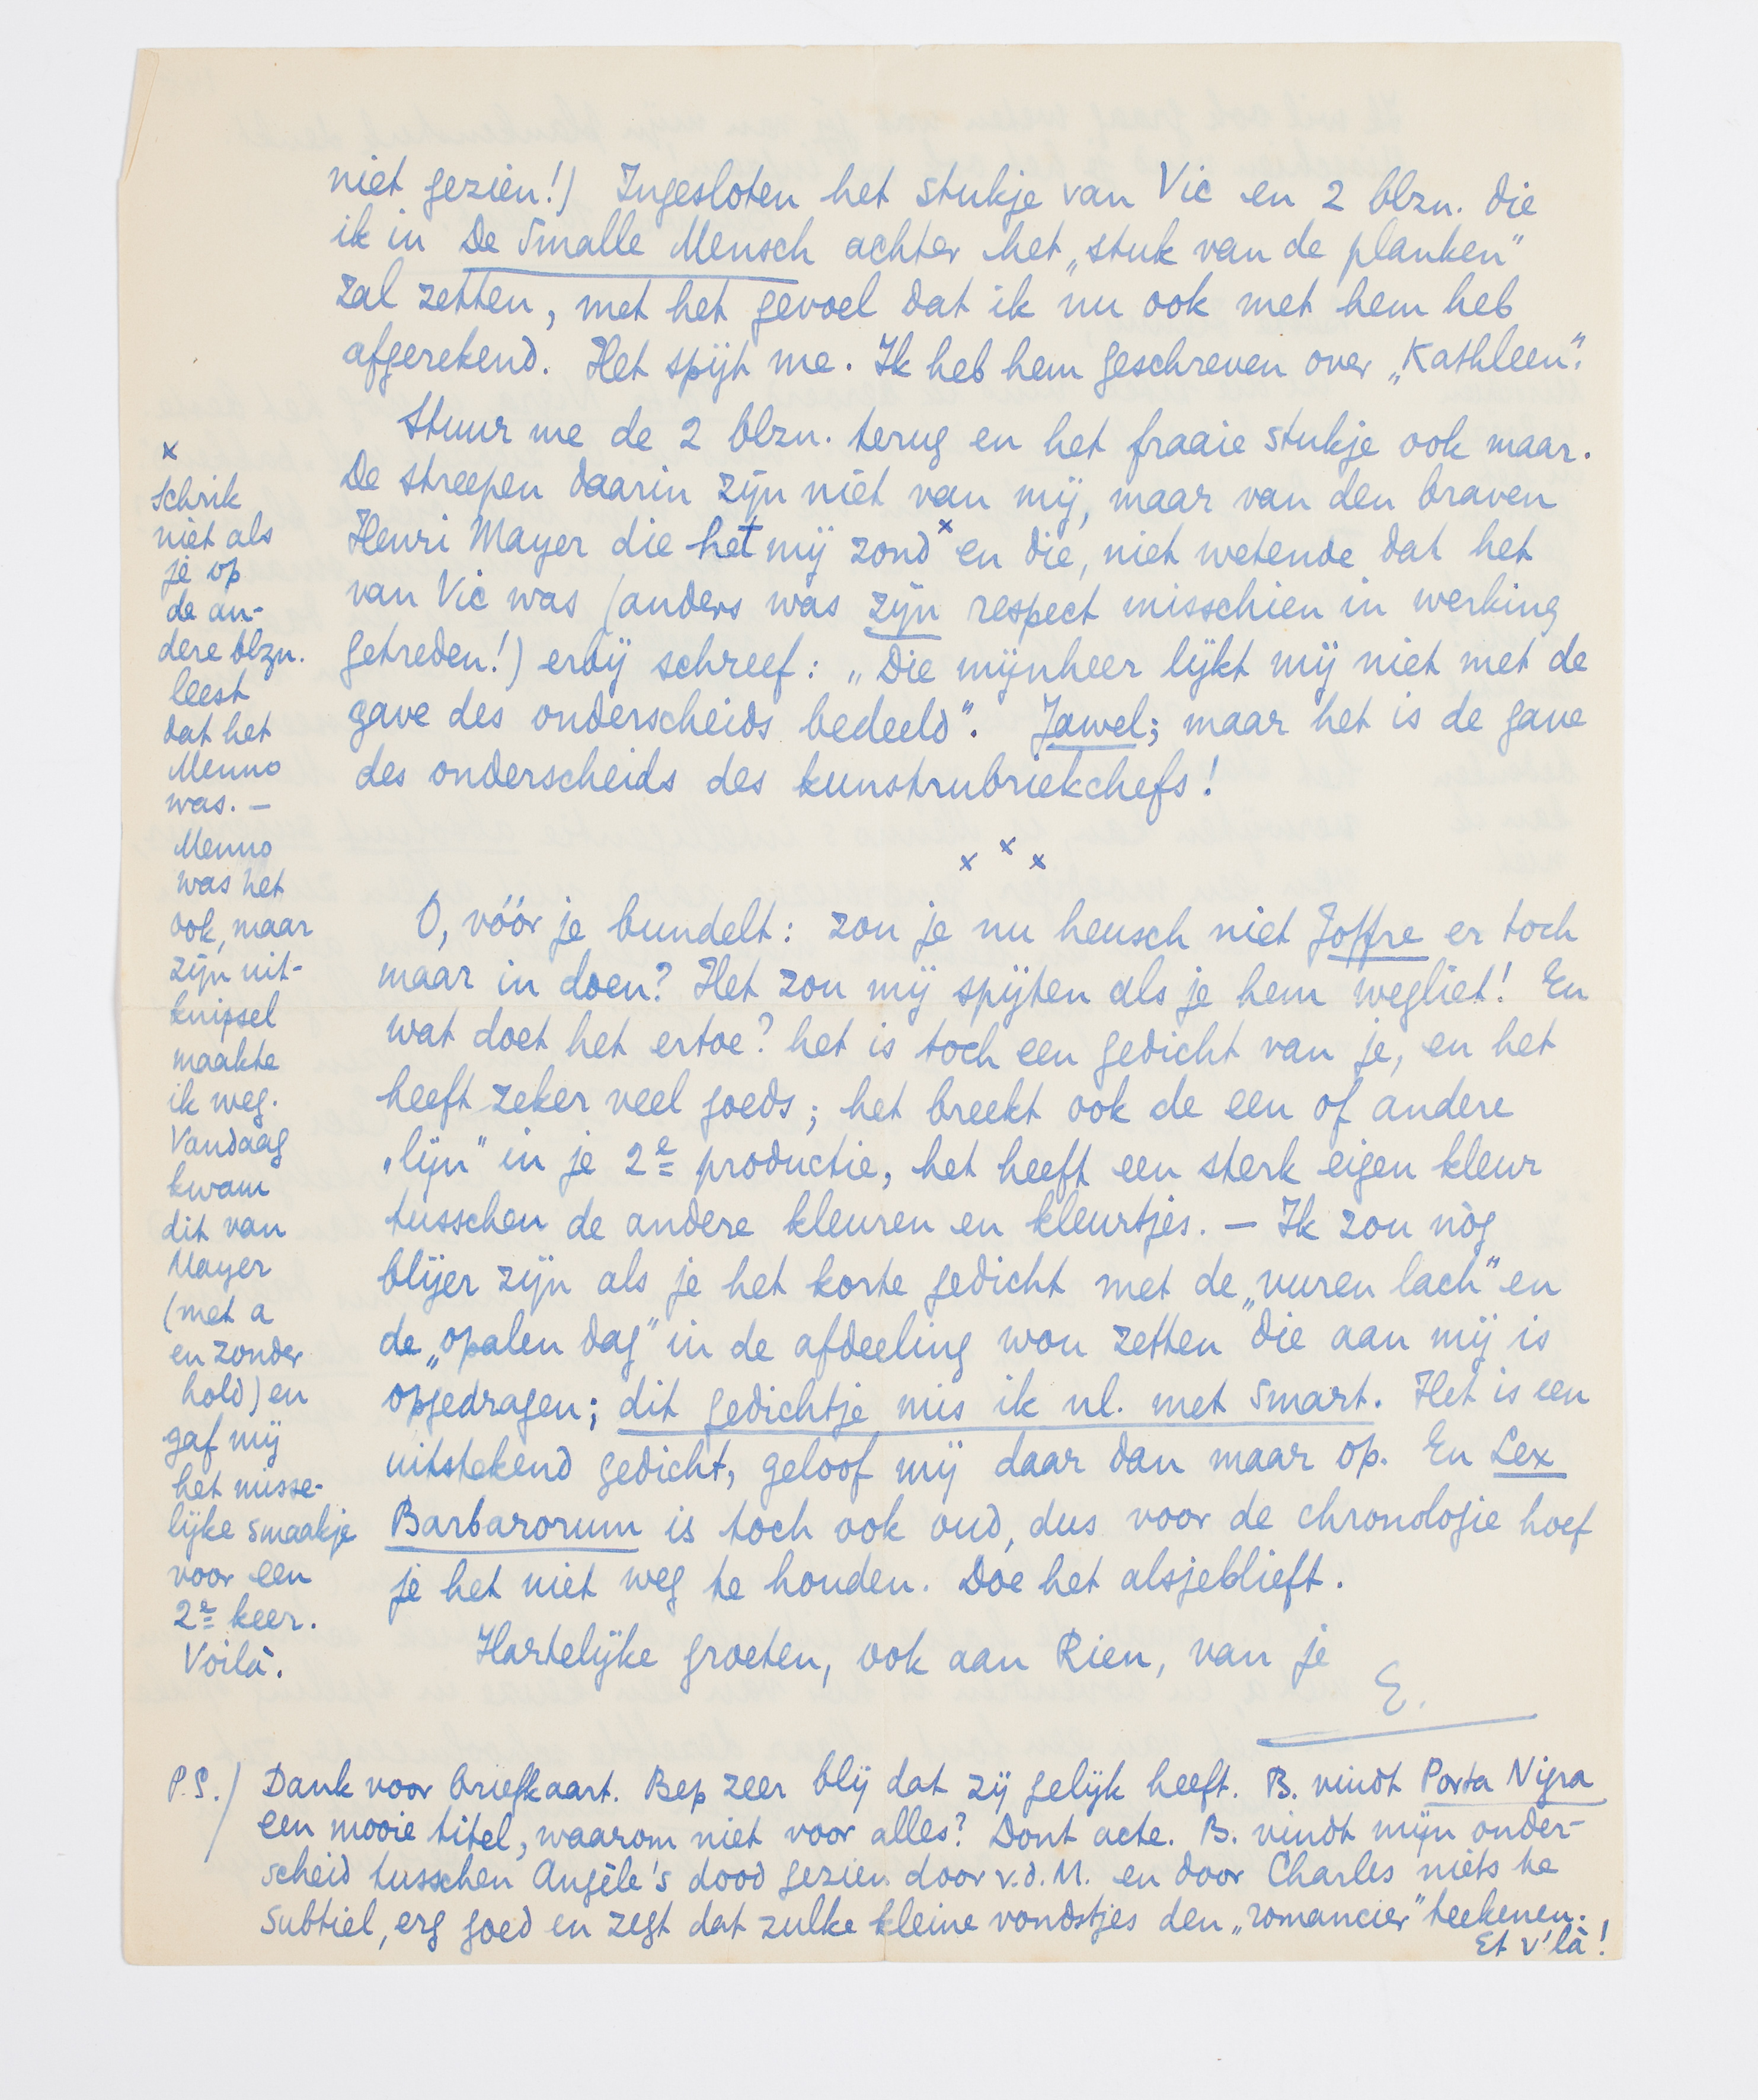 niet gezien!) Ingesloten het stukje van Vic en 2 blzn. die
ik in De Smalle Mensch achter het „stuk van de planken"
zal zetten, met het gevoel dat ik nu ook met hem heb
afgerekend. Het spijt me. Ik heb hem geschreven over „Kathleen".
Stuur me de 2 blzn. terug en het fraaie stukje ook maar.
De streepen daarin zijn niet van mij, maar van den braven
Henri Mayer die het mij zond x en die, niet wetende dat het
van Vic was (anders was zijn respect misschien in werking
getreden!) erbij schreef: „Die mijnheer lijkt mij niet met de
gave des onderscheids bedeeld". Jawel; maar het is de gave
des onderscheids des kunstrubriekchefs!
x x x
O, vóór je bundelt: zou je nu heusch niet Joffre er toch
maar in doen? Het zou mij spijten als je hem wegliet! En
wat doet het ertoe? het is toch een gedicht van je, en het
heeft zeker veel goeds; het breekt ook de een of andere
„lijn" in je 2e productie, het heeft een sterk eigen kleur
tusschen de andere kleuren en kleurtjes. — Ik zou nòg
blijer zijn als je het korte gedicht met de „vuren lach" en
de „opalen dag" in de afdeeling wou zetten die aan mij is
opgedragen; dit gedichtje mis ik nl. met smart. Het is een
uitstekend gedicht, geloof mij daar dan maar op. En Lex
Barbarorum is toch ook oud, dus voor de chronologie hoef
je het niet weg te houden. Doe het alsjeblieft.
Hartelijke groeten, ook aan Rien, van je
E.
x
Schrik
niet als
je op
de an-
dere blzn.
leest
dat het
Menno
was. —
Menno
was het
ook, maar
zijn uit-
knipsel
maakte
ik weg.
Vandaag
kwam
dit van
Mayer
(met a
en zonder
hold) en
gaf mij
het misse-
lijke smaakje
voor een
2e keer.
Voilà.
P.S./ Dank voor briefkaart. Bep zeer blij dat zij gelijk heeft. B. vindt Porta Nigra
een mooie titel, waarom niet voor alles? Dont acte. B. vindt mijn onder-
scheid tusschen Angèle's dood gezien door v.d. M. en door Charles niets te
subtiel, erg goed en zegt dat zulke kleine vondstjes den „romancier" teekenen.
Et v'là!